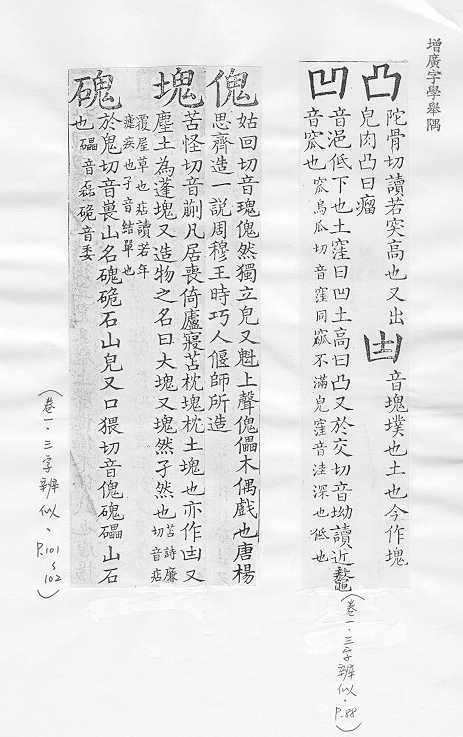 增廣字學舉隅
凸
陀骨切讀若突高也又出
皃肉凸曰瘤
甴
音塊墣也土也今作塊
凹
音浥低下也土窪曰凹土高曰凸又於交切音坳讀近鏖
音窊也
窊烏瓜切音窪同窳不滿皃窪音洼深也低也
(卷一.三字辨似.P.88)
傀
姑回切音瑰傀然獨立皃又魁上聲傀儡木偶戲也唐楊
思齊造一說周穆王時巧人偃師所造
塊
苦怪切音蒯凡居喪倚廬寢苫枕塊枕土塊也亦作甴又
塵土為蓬塊又造物之名曰大塊又塊然孑然也
苫詩廉切音痁
覆屋草也痁讀若年
瘧疾也孑音結單也
磈
於鬼切音畏山名磈硊石山皃又口猥切音傀磈礧山石
也
礧音磊硊音委
(卷一.三字辨似.P.101~102)